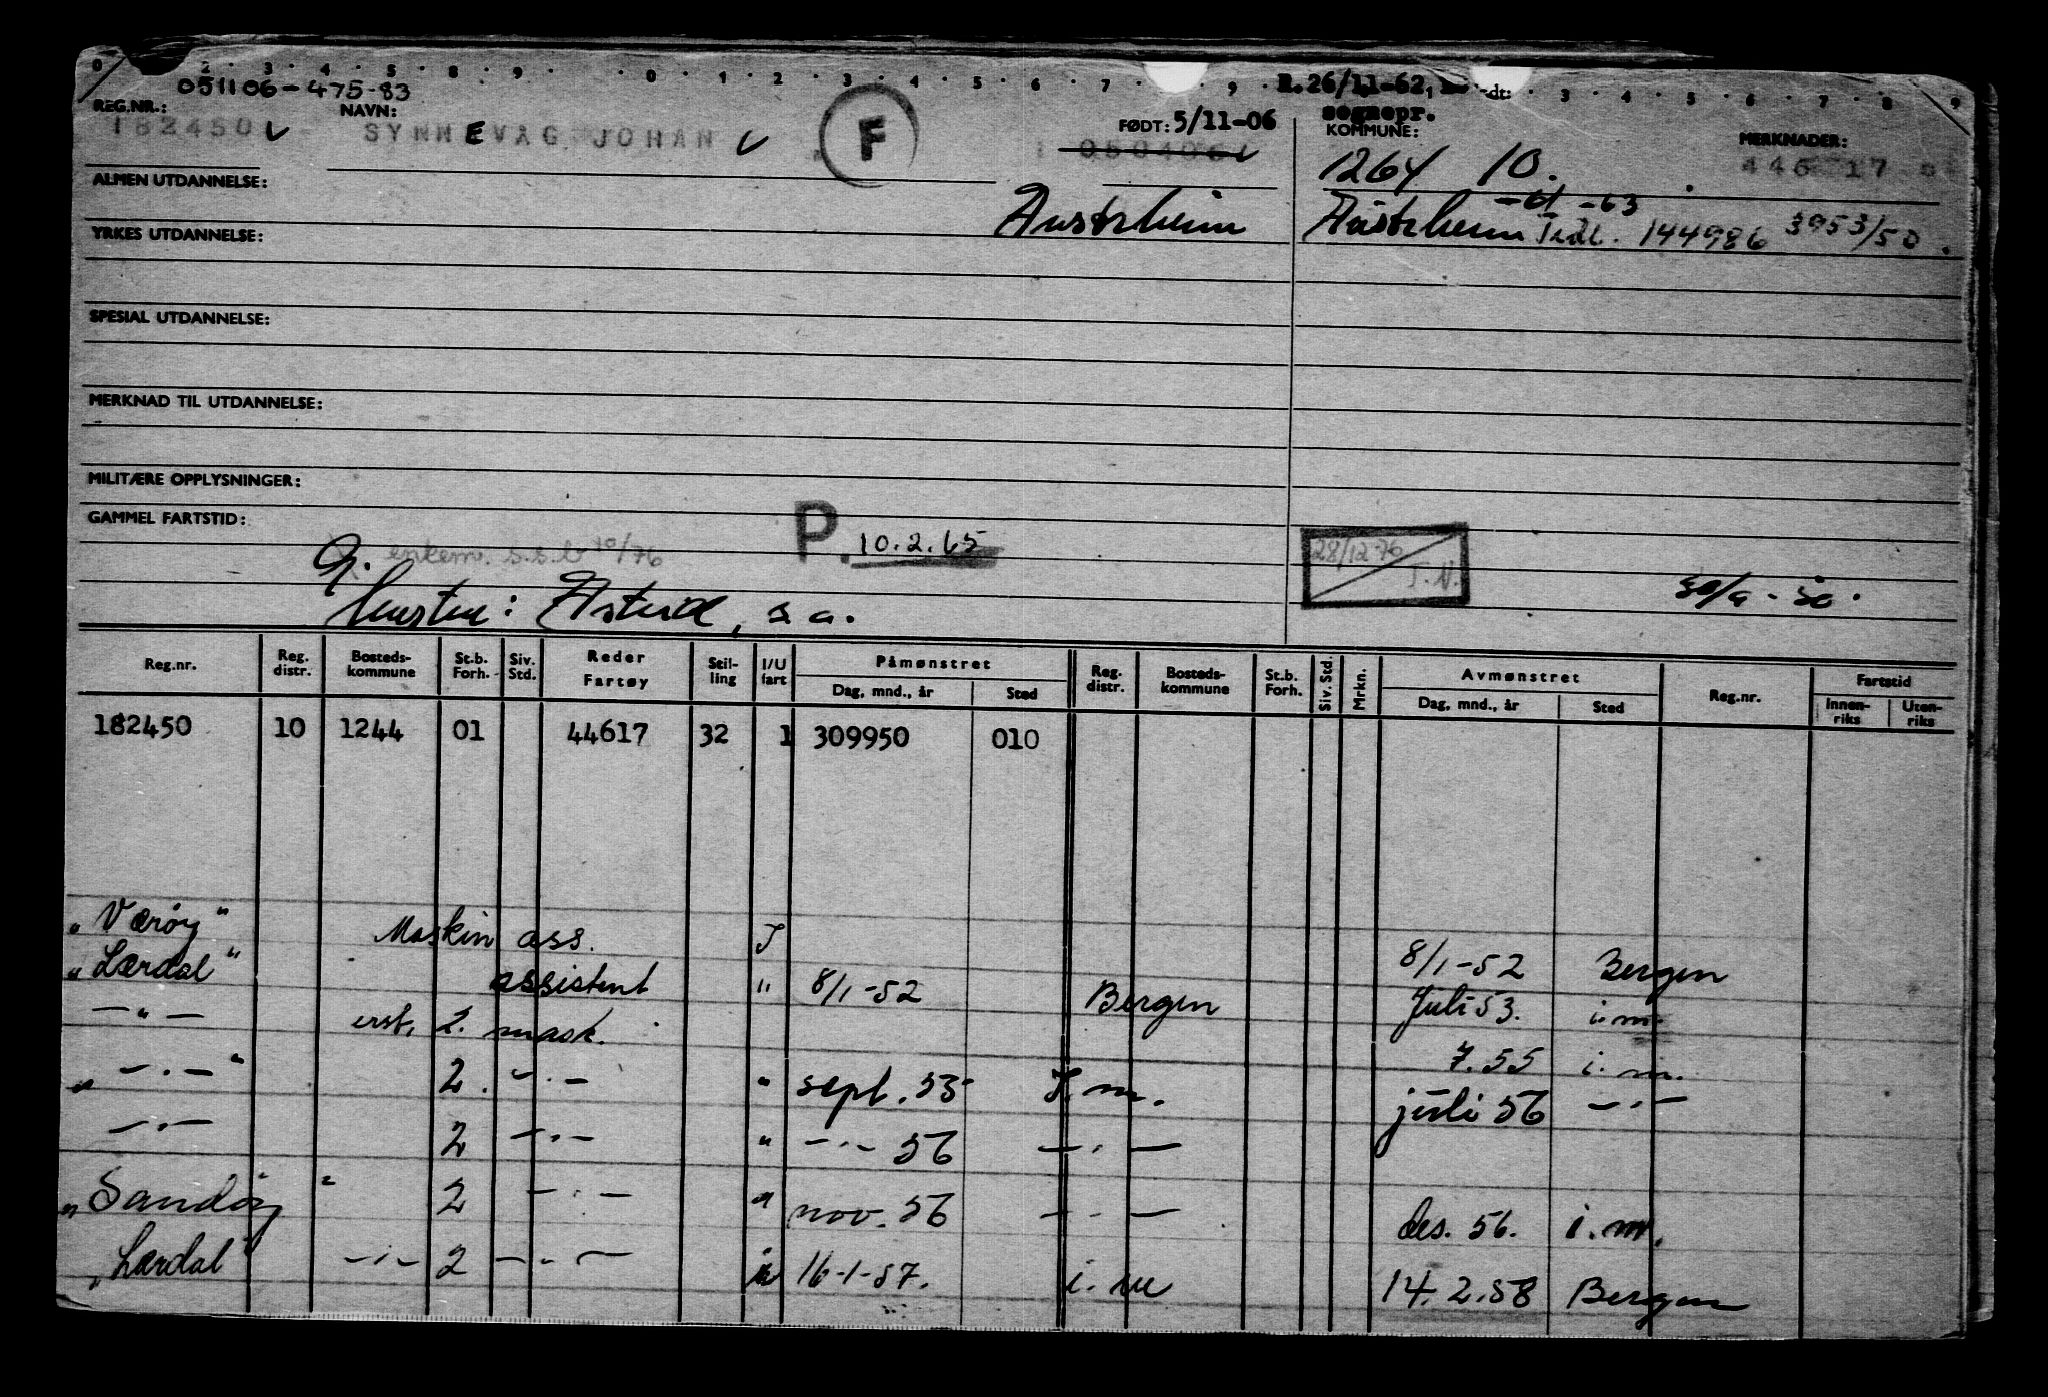 051106-475-83
R.26/11-62,
REG.NR.: NAVN: FØDT: 5/11-06 sognepr. KOMMUNE: MERKNADER:
182450 SYNNEVÅG JOHAN F 1264 10. 446 17
ALMEN UTDANNELSE:
Austrheim Austrheim Tidl. 144986 3953/50.
YRKES UTDANNELSE:
SPESIAL UTDANNELSE:
MERKNAD TIL UTDANNELSE:
MILITÆRE OPPLYSNINGER:
GAMMEL FARTSTID:
G. enkem. s.s.b 10/76 P. 10.2.65 28/12-76 T.N.
Hustru: Astrid, s.a. 30/9-50.
Reg.nr. Reg. distr. Bosteds-kommune St.b. Forh. Siv. Std. Reder Fartøy Stil-ling I/U fart Påmønstret Dag, mnd., år Sted Reg. distr. Bosteds-kommune St.b. Forh. Siv. Std. Mrkn. Avmønstret Dag, mnd., år Sted Reg.nr. Fartstid Innen-riks Uten-riks
182450 10 1244 01 44617 32 1 309950 010
"Værøy" Maskin ass. I 8/1-52 Bergen
"Lærdal" assistent " 8/1-52 Bergen Juli 53. i.m.
—"— erst. 2. mask. 7.55 i.m.
"—.—" 2. —.— " sept. 55 I.m. juli 56 —.—
—.— 2 —.— " —.— 56 —.—
"Sandøy" 2 —.— " nov. 56 —.— des. 56. i.m.
"Lærdal" —.— 2 —.— 16-1-57. i.m 14.2.58 Bergen